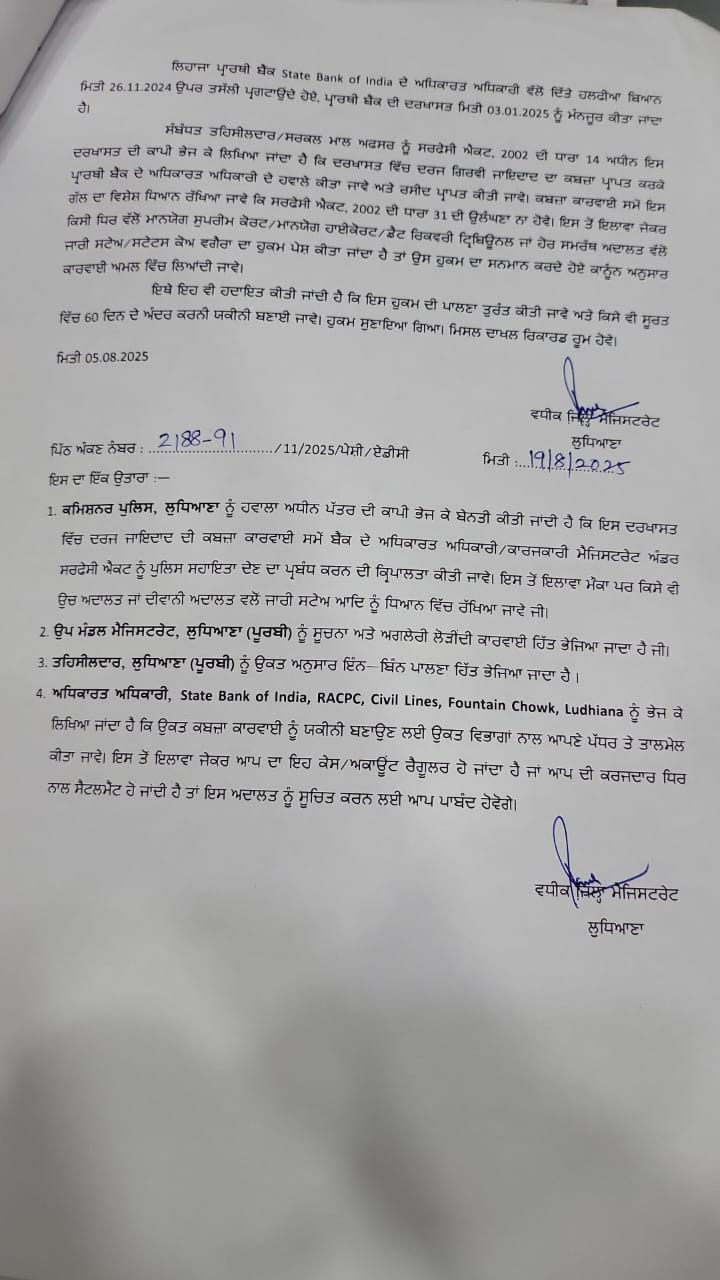 ਲਿਹਾਜਾ ਪ੍ਰਾਰਥੀ ਬੈਂਕ State Bank of India ਦੇ ਅਧਿਕਾਰਤ ਅਧਿਕਾਰੀ ਵੱਲੋਂ ਦਿੱਤੇ ਹਲਫੀਆ ਬਿਆਨ
ਮਿਤੀ 26.11.2024 ਉਪਰ ਤਸੱਲੀ ਪ੍ਰਗਟਾਉਂਦੇ ਹੋਏ, ਪ੍ਰਾਰਥੀ ਬੈਂਕ ਦੀ ਦਰਖਾਸਤ ਮਿਤੀ 03.01.2025 ਨੂੰ ਮੰਨਜੂਰ ਕੀਤਾ ਜਾਂਦਾ
ਹੈ।
ਸੰਬੰਧਤ ਤਹਿਸੀਲਦਾਰ/ਸਰਕਲ ਮਾਲ ਅਫਸਰ ਨੂੰ ਸਰਫੇਸੀ ਐਕਟ, 2002 ਦੀ ਧਾਰਾ 14 ਅਧੀਨ ਇਸ
ਦਰਖਾਸਤ ਦੀ ਕਾਪੀ ਭੇਜ ਕੇ ਲਿਖਿਆ ਜਾਂਦਾ ਹੈ ਕਿ ਦਰਖਾਸਤ ਵਿੱਚ ਦਰਜ ਗਿਰਵੀ ਜਾਇਦਾਦ ਦਾ ਕਬਜ਼ਾ ਪ੍ਰਾਪਤ ਕਰਕੇ
ਪ੍ਰਾਰਥੀ ਬੈਂਕ ਦੇ ਅਧਿਕਾਰਤ ਅਧਿਕਾਰੀ ਦੇ ਹਵਾਲੇ ਕੀਤਾ ਜਾਵੇ ਅਤੇ ਰਸੀਦ ਪ੍ਰਾਪਤ ਕੀਤੀ ਜਾਵੇ। ਕਬਜ਼ਾ ਕਾਰਵਾਈ ਸਮੇਂ ਇਸ
ਗੱਲ ਦਾ ਵਿਸ਼ੇਸ਼ ਧਿਆਨ ਰੱਖਿਆ ਜਾਵੇ ਕਿ ਸਰਫੇਸੀ ਐਕਟ, 2002 ਦੀ ਧਾਰਾ 31 ਦੀ ਉਲੰਘਣਾ ਨਾ ਹੋਵੇ। ਇਸ ਤੋਂ ਇਲਾਵਾ ਜੇਕਰ
ਕਿਸੀ ਧਿਰ ਵੱਲੋਂ ਮਾਨਯੋਗ ਸੁਪਰੀਮ ਕੋਰਟ/ਮਾਨਯੋਗ ਹਾਈਕੋਰਟ/ਡੈਟ ਰਿਕਵਰੀ ਟ੍ਰਿਬਿਊਨਲ ਜਾਂ ਹੋਰ ਸਮਰੱਥ ਅਦਾਲਤ ਵੱਲੋਂ
ਜਾਰੀ ਸਟੇਅ/ਸਟੇਟਸ ਕੋਅ ਵਗੈਰਾ ਦਾ ਹੁਕਮ ਪੇਸ਼ ਕੀਤਾ ਜਾਂਦਾ ਹੈ ਤਾਂ ਉਸ ਹੁਕਮ ਦਾ ਸਨਮਾਨ ਕਰਦੇ ਹੋਏ ਕਾਨੂੰਨ ਅਨੁਸਾਰ
ਕਾਰਵਾਈ ਅਮਲ ਵਿੱਚ ਲਿਆਂਦੀ ਜਾਵੇ।
ਇਥੇ ਇਹ ਵੀ ਹਦਾਇਤ ਕੀਤੀ ਜਾਂਦੀ ਹੈ ਕਿ ਇਸ ਹੁਕਮ ਦੀ ਪਾਲਣਾ ਤੁਰੰਤ ਕੀਤੀ ਜਾਵੇ ਅਤੇ ਕਿਸੇ ਵੀ ਸੂਰਤ
ਵਿੱਚ 60 ਦਿਨ ਦੇ ਅੰਦਰ ਕਰਨੀ ਯਕੀਨੀ ਬਣਾਈ ਜਾਵੇ। ਹੁਕਮ ਸੁਣਾਇਆ ਗਿਆ। ਮਿਸਲ ਦਾਖਲ ਰਿਕਾਰਡ ਰੂਮ ਹੋਵੇ।
ਮਿਤੀ 05.08.2025
ਵਧੀਕ ਜ਼ਿਲ੍ਹਾ ਮੈਜਿਸਟਰੇਟ
ਲੁਧਿਆਣਾ
ਪਿੱਠ ਅੰਕਣ ਨੰਬਰ : 2188-91 /11/2025/ਪੇਸ਼ੀ/ਏਡੀਸੀ ਮਿਤੀ : 19/8/2025
ਇਸ ਦਾ ਇੱਕ ਉਤਾਰਾ :—
1. ਕਮਿਸ਼ਨਰ ਪੁਲਿਸ, ਲੁਧਿਆਣਾ ਨੂੰ ਹਵਾਲਾ ਅਧੀਨ ਪੱਤਰ ਦੀ ਕਾਪੀ ਭੇਜ ਕੇ ਬੇਨਤੀ ਕੀਤੀ ਜਾਂਦੀ ਹੈ ਕਿ ਇਸ ਦਰਖਾਸਤ
ਵਿੱਚ ਦਰਜ ਜਾਇਦਾਦ ਦੀ ਕਬਜ਼ਾ ਕਾਰਵਾਈ ਸਮੇਂ ਬੈਂਕ ਦੇ ਅਧਿਕਾਰਤ ਅਧਿਕਾਰੀ/ਕਾਰਜਕਾਰੀ ਮੈਜਿਸਟਰੇਟ ਅੰਡਰ
ਸਰਫੇਸੀ ਐਕਟ ਨੂੰ ਪੁਲਿਸ ਸਹਾਇਤਾ ਦੇਣ ਦਾ ਪ੍ਰਬੰਧ ਕਰਨ ਦੀ ਕ੍ਰਿਪਾਲਤਾ ਕੀਤੀ ਜਾਵੇ। ਇਸ ਤੋਂ ਇਲਾਵਾ ਮੌਕਾ ਪਰ ਕਿਸੇ ਵੀ
ਉਚ ਅਦਾਲਤ ਜਾਂ ਦੀਵਾਨੀ ਅਦਾਲਤ ਵਲੋਂ ਜਾਰੀ ਸਟੇਅ ਆਦਿ ਨੂੰ ਧਿਆਨ ਵਿੱਚ ਰੱਖਿਆ ਜਾਵੇ ਜੀ।
2. ਉਪ ਮੰਡਲ ਮੈਜਿਸਟਰੇਟ, ਲੁਧਿਆਣਾ (ਪੂਰਬੀ) ਨੂੰ ਸੂਚਨਾ ਅਤੇ ਅਗਲੇਰੀ ਲੋੜੀਂਦੀ ਕਾਰਵਾਈ ਹਿੱਤ ਭੇਜਿਆ ਜਾਂਦਾ ਹੈ ਜੀ।
3. ਤਹਿਸੀਲਦਾਰ, ਲੁਧਿਆਣਾ (ਪੂਰਬੀ) ਨੂੰ ਉਕਤ ਅਨੁਸਾਰ ਇੰਨ—ਬਿੰਨ ਪਾਲਣਾ ਹਿੱਤ ਭੇਜਿਆ ਜਾਂਦਾ ਹੈ ।
4. ਅਧਿਕਾਰਤ ਅਧਿਕਾਰੀ, State Bank of India, RACPC, Civil Lines, Fountain Chowk, Ludhiana ਨੂੰ ਭੇਜ ਕੇ
ਲਿਖਿਆ ਜਾਂਦਾ ਹੈ ਕਿ ਉਕਤ ਕਬਜ਼ਾ ਕਾਰਵਾਈ ਨੂੰ ਯਕੀਨੀ ਬਣਾਉਣ ਲਈ ਉਕਤ ਵਿਭਾਗਾਂ ਨਾਲ ਆਪਣੇ ਪੱਧਰ ਤੇ ਤਾਲਮੇਲ
ਕੀਤਾ ਜਾਵੇ। ਇਸ ਤੋਂ ਇਲਾਵਾ ਜੇਕਰ ਆਪ ਦਾ ਇਹ ਕੇਸ/ਅਕਾਊਂਟ ਰੈਗੂਲਰ ਹੋ ਜਾਂਦਾ ਹੈ ਜਾਂ ਆਪ ਦੀ ਕਰਜਦਾਰ ਧਿਰ
ਨਾਲ ਸੈਟਲਮੈਂਟ ਹੋ ਜਾਂਦੀ ਹੈ ਤਾਂ ਇਸ ਅਦਾਲਤ ਨੂੰ ਸੂਚਿਤ ਕਰਨ ਲਈ ਆਪ ਪਾਬੰਦ ਹੋਵੋਗੇ।
ਵਧੀਕ ਜ਼ਿਲ੍ਹਾ ਮੈਜਿਸਟਰੇਟ
ਲੁਧਿਆਣਾ